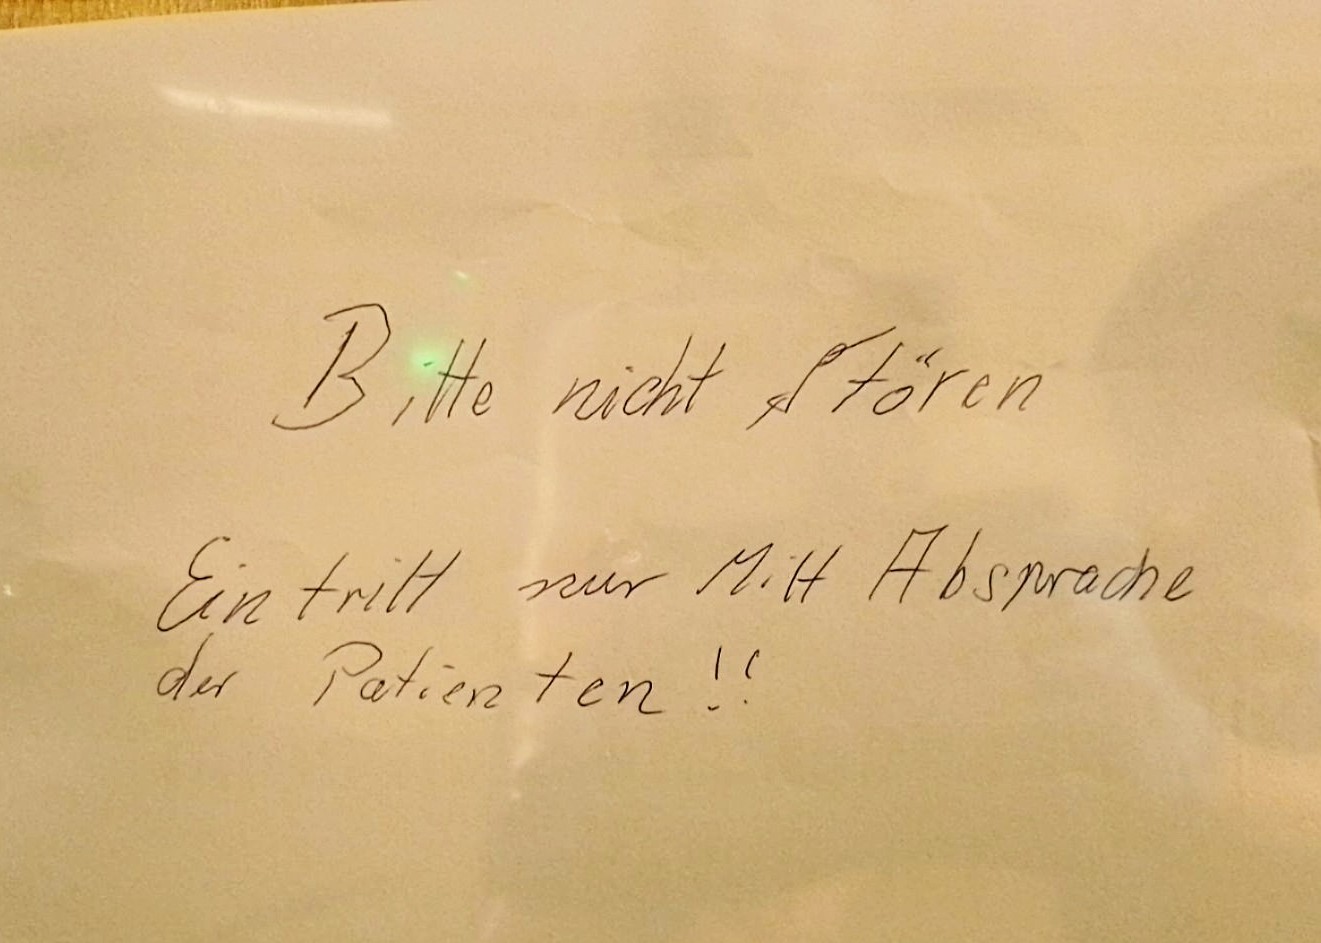 Bitte nicht Stören
Eintritt nur Mitt Absprache
der Patienten !!